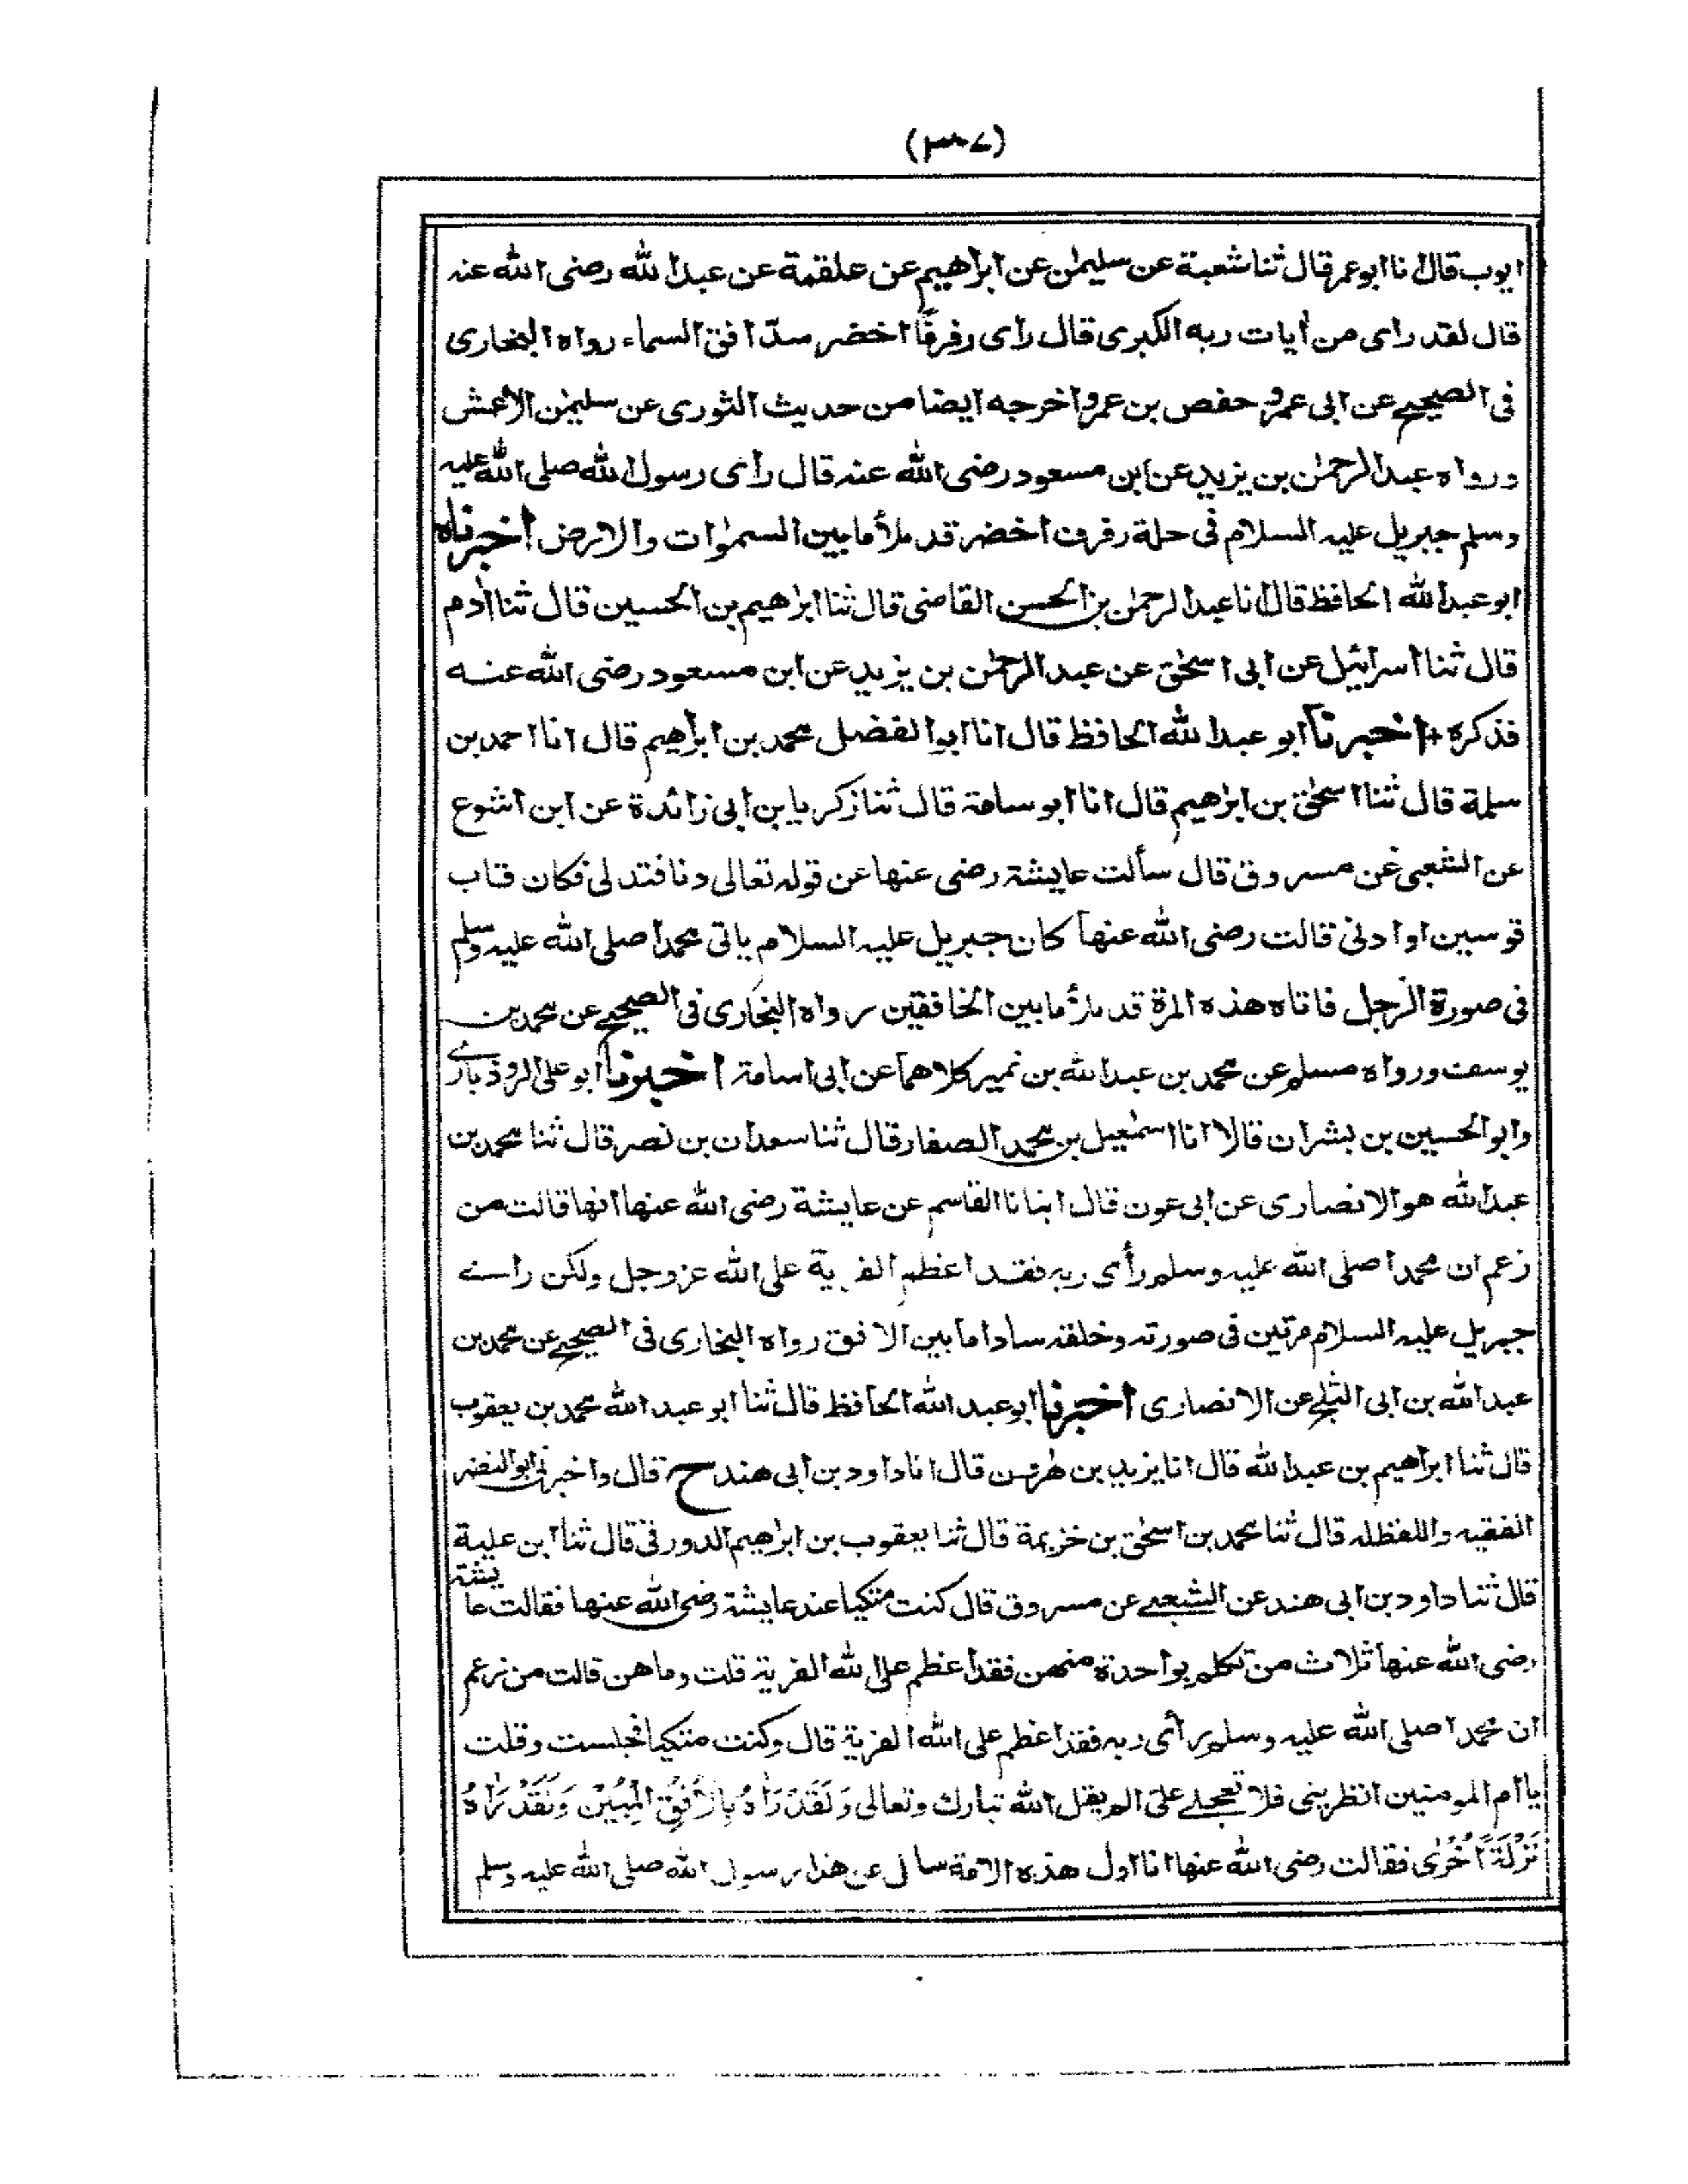 (٣٠٧)
ايوب قال انا ابو عمر قال ثنا شعبة عن سليمٰن عن ابرٰهيم عن علقمة عن عبد الله رضى الله عنه
قال لقد راى من أيات ربه الكبرى قال رأى رفرفًا اخضر سدّ افق السماء رواه البخارى
فى الصحيح عن ابى عمرو حفص بن عمر واخرجه ايضا من حديث الثورى عن سليمٰن الاعمش
ورواه عبد الرحمٰن بن يزيد عن ابن مسعود رضى الله عنه قال رأى رسول الله صلى الله عليه
وسلم جبريل عليه السلام فى حلة رفرف اخضر قد ملأ ما بين السمٰوات والارض اخبرناه
ابو عبد الله الحافظ قال انا عبد الرحمٰن بن الحسن القاضى قال ثنا ابرٰهيم بن الحسين قال ثنا أدم
قال ثنا اسرائيل عن ابى اسحٰق عن عبد الرحمٰن بن يزيد عن ابن مسعود رضى الله عنه
فذكره + اخبرنا ابو عبد الله الحافظ قال انا ابو الفضل محمد بن ابرٰهيم قال انا احمد بن
سلمة قال ثنا اسحٰق بن ابرٰهيم قال انا ابو سامة قال ثنا زكريا بن ابى زائدة عن ابن اشوع
عن الشعبى عن مسروق قال سألت عايشة رضى عنها عن قوله تعالى دنا فتدلى فكان قاب
قوسين او ادنى قالت رضى الله عنها كان جبريل عليه السلام ياتى محمدا صلى الله عليه وسلم
فى صورة الرجل فاتاه هذه المرة قد ملأ ما بين الخافقين رواه البخارى فى الصحيح عن محمد بن
يوسف ورواه مسلم عن محمد بن عبد الله بن نمير كلاهما عن ابى اسامة اخبرنا ابو على الروذبارے
وابو الحسين بن بشران قالا انا اسمٰعيل بن محمد الصفار قال ثنا سعدان بن نصر قال ثنا محمد بن
عبد الله هو الانصارى عن ابى عون قال انبانا القاسم عن عايشة رضى الله عنها انها قالت من
زعم ان محمدا صلى الله عليه وسلم رأى ربه فقد اعظم الفرية على الله عز وجل ولكن راے
جبريل عليه السلام مرتين فى صورته وخلقه سادا ما بين الافق رواه البخارى فى الصحيح عن محمد بن
عبد الله بن ابى الثلج عن الانصارى اخبرنا ابو عبد الله الحافظ قال ثنا ابو عبد الله محمد بن يعقوب
قال ثنا ابرٰهيم بن عبد الله قال انا يزيد بن هٰرون قال انا داود بن ابى هند ح قال واخبرنى ابو النضر
الفقيه واللفظ له قال ثنا محمد بن اسحٰق بن خزيمة قال ثنا يعقوب بن ابرٰهيم الدورقى قال ثنا ابن علية
قال ثنا داود بن ابى هند عن الشعبے عن مسروق قال كنت متكيا عند عايشة رضى الله عنها فقالت عايشة
رضى الله عنها ثلاث من تكلم بواحدة منهن فقد اعظم على الله الفرية قلت وما هن قالت من زعم
ان محمدا صلى الله عليه وسلم رأى ربه فقد اعظم على الله الفرية قال وكنت متكيا فجلست وقلت
يا ام المومنين انظرينى فلا تعجلے علىّ الم يقل الله تبارك وتعالى وَلَقَدْ رَاٰهُ بِالْاُفُقِ الْمُبِيْنِ وَلَقَدْ رَاٰهُ
نَزْلَةً اُخْرٰى فقالت رضى الله عنها انا اول هذه الامة سال عن هذا رسول الله صلى الله عليه وسلم